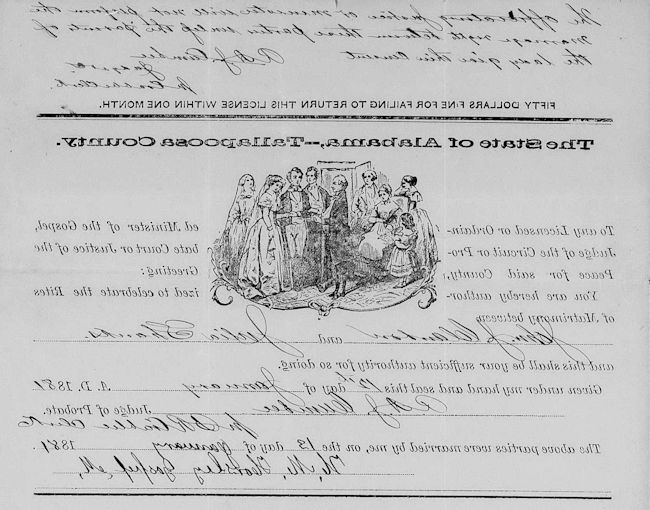 The officiating Justice or minister will not perform the
marriage right between these parties unless the parents of
the lady give their consent
Judge
FIFTY DOLLARS FINE FOR FAILING TO RETURN THIS LICENSE WITHIN ONE MONTH.
The State of Alabama,--Tallapoosa County.
To any Licensed or Ordain-ed Minister of the Gospel,
Judge of the Circuit or Pro-bate Court or Justice of the
Peace for said County, Greeting:
You are hereby author-ized to celebrate the Rites
of Matrimony between
John J and Julia Shanks
and this shall be your sufficient authority for so doing.
Given under my hand and seal this 12th day of January A. D. 1881
Judge of Probate.
The above parties were married by me, on the 13 day of January 1881
N. M. Gospel M,